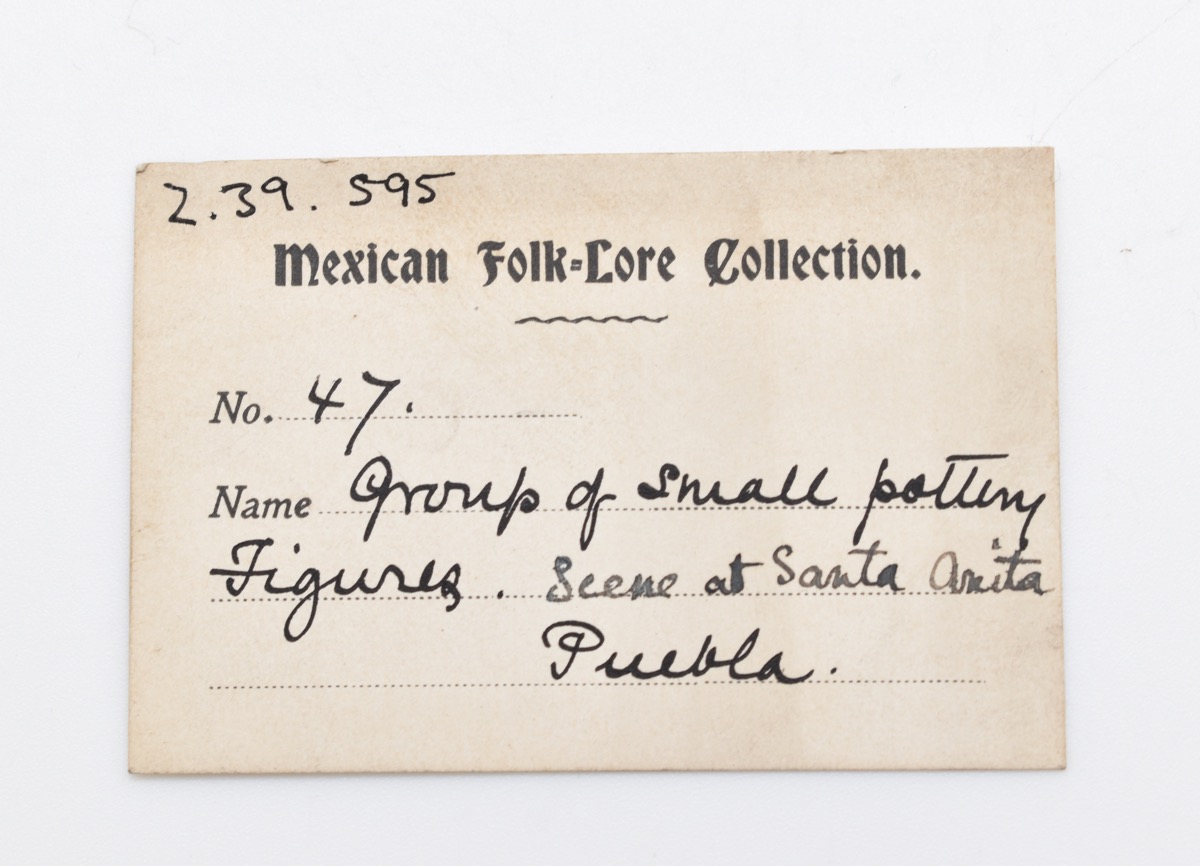 2.39. 595
Mexican Folk-Lore Collection.
No. 47.
Name Group of small pottery
Figures. Scene at Santa Anita
Puebla.